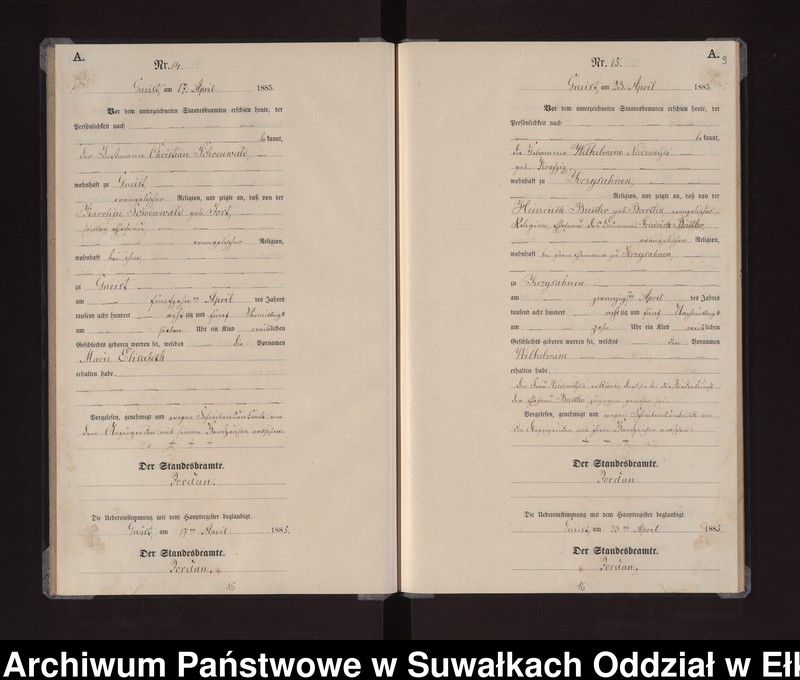 A.
Nr. 14.
Gneist, am 17. April 1885.
Vor dem unterzeichneten Standesbeamten erschien heute, der
Persönlichkeit nach
be kannt,
der Christian Schoenwald,
wohnhaft zu Gneist,
evangelischer Religion, und zeigte an, daß von der
Karoline Schoenwald geb. Jost,
seiner Ehefrau,
evangelischer Religion,
wohnhaft bei ihm,
zu Gneist
am fünfzehn ten April des Jahres
tausend acht hundert acht zig und fünf Vormittags
um sieben Uhr ein Kind weiblichen
Geschlechts geboren worden sei, welches die Vornamen
Marie Elisabeth
erhalten habe.
Vorgelesen, genehmigt und wegen Schreibensunkunde von
dem Anzeigenden mit seinem Handzeichen versehen.
+ + +
Der Standesbeamte.
Jordan.
Die Uebereinstimmung mit dem Hauptregister beglaubigt.
Gneist, am 17ten April 1885.
Der Standesbeamte.
Jordan.
15
A.
9
Nr. 15.
Gneist, am 23. April 1885.
Vor dem unterzeichneten Standesbeamten erschien heute, der
Persönlichkeit nach
be kannt,
die Hebamme Wilhelmine
geb.
wohnhaft zu Krzysahnen,
Religion, und zeigte an, daß von der
Heinriette geb. evangelischer
Religion, Ehefrau des Friedrich
evangelischer Religion,
wohnhaft bei ihrem Ehemann zu Krzysahnen,
zu Krzysahnen
am zwanzig ten April des Jahres
tausend acht hundert acht zig und fünf Nachmittags
um zehn Uhr ein Kind weiblichen
Geschlechts geboren worden sei, welches den Vornamen
Wilhelmine
erhalten habe.
Die bei der Niederkunft
der Ehefrau zugegen gewesen sei.
Vorgelesen, genehmigt und wegen Schreibensunkunde von
der Anzeigenden mit ihrem Handzeichen versehen.
+ + +
Der Standesbeamte.
Jordan.
Die Uebereinstimmung mit dem Hauptregister beglaubigt.
Gneist, am 23ten April 1885.
Der Standesbeamte.
Jordan,
16
Archiwum Państwowe w Suwałkach Oddział w Ełk